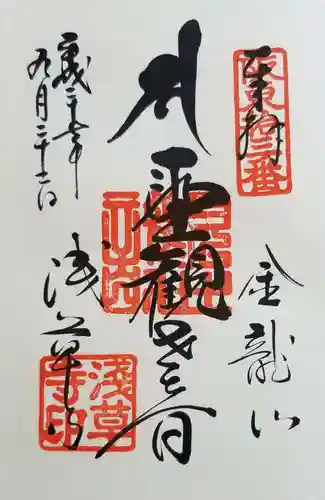 奉拝
坂東拾三番
金龍山
聖観世音
浅草寺
浅草寺印
平成二十七年
九月